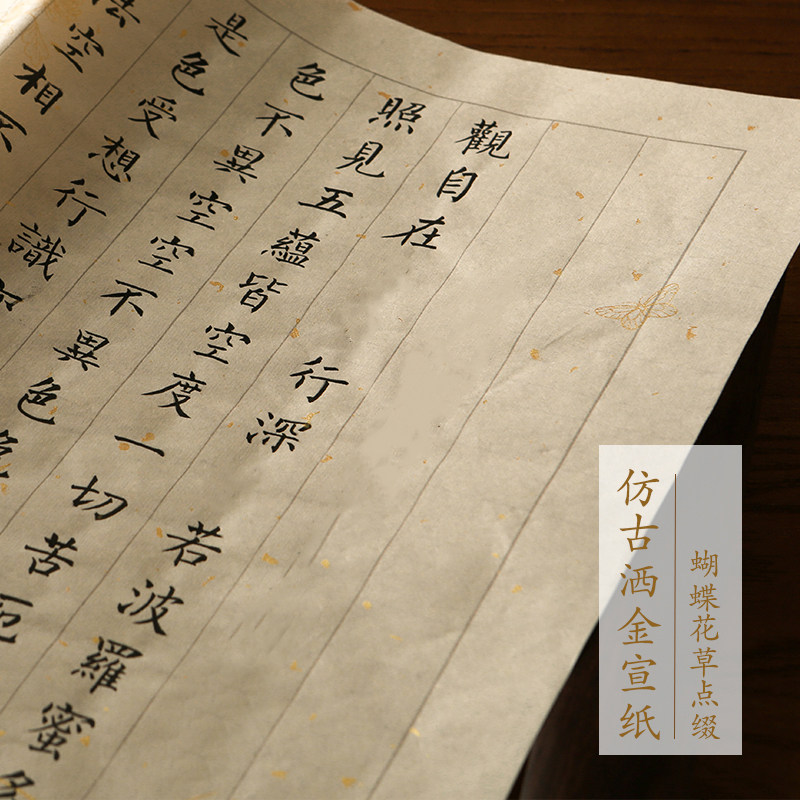 觀自在行深若波羅蜜多
照見五蘊皆空度一切苦厄
色不異空空不異色色
是色受想行識
法空相不
仿古洒金宣纸
蝴蝶花草点缀